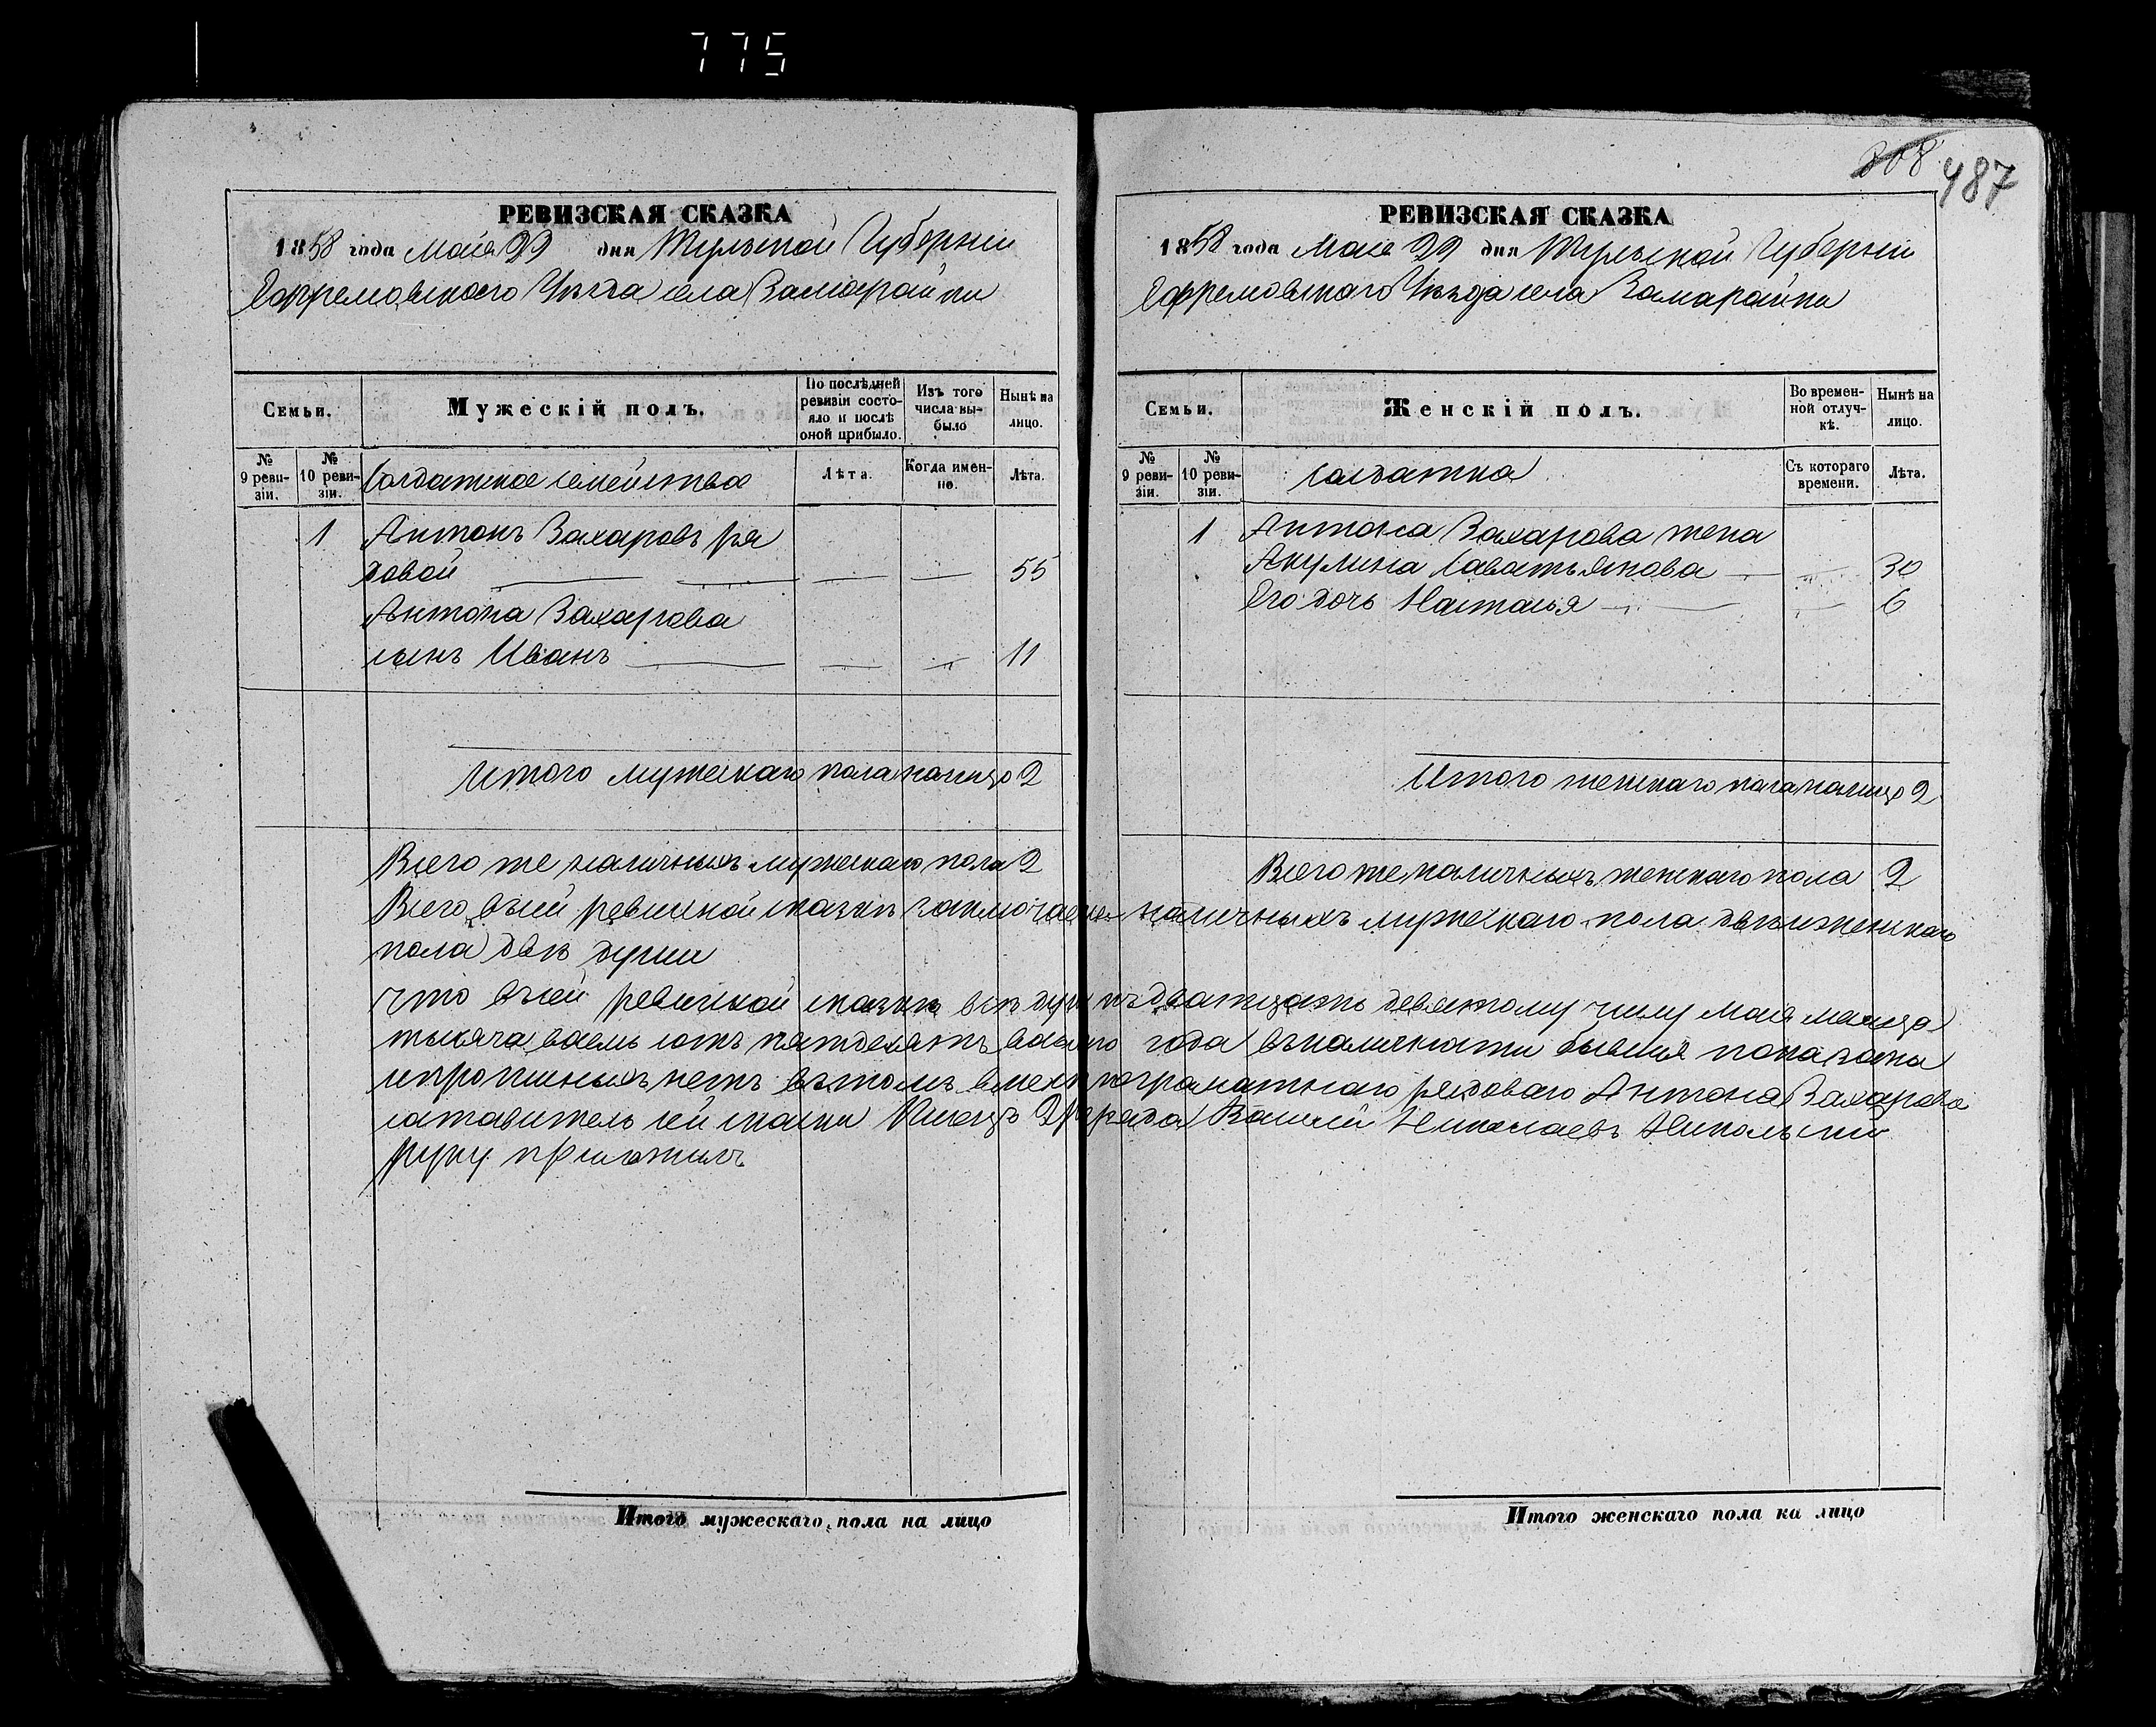 775
308
487
РЕВИЗСКАЯ СКАЗКА
1858 года Мая 29 дня Тульской Губернии
Ефремовского Уѣзда села Замарайки
Семьи.
Мужескій полъ.
По послѣдней ревизіи состо-
яло и послѣ
оной прибыло.
Изъ того
числа вы-
было
Нынѣ на
лицо.
№
9 реви-
зіи.
№
10 реви-
зіи.
Солдатское семейство
Лѣта.
Когда имен-
но.
Лѣта.
1 Антонъ Захаровъ ря
довой 55
Антона Захарова
сынъ Иванъ 11
Итого мужескаго пола налицо 2
Всего же наличныхъ мужескаго пола 2
РЕВИЗСКАЯ СКАЗКА
1858 года Мая 29 дня Тульской Губернии
Ефремовского Уѣзда села Замарайки
Семьи.
Женскій полъ.
Во времен-
ной отлуч-
кѣ.
Нынѣ на
лицо.
№
9 реви-
зіи.
№
10 реви-
зіи.
солдатка
Съ котораго
времени.
Лѣта.
1 Антона Захарова жена
Акулина Саватьянова 30
Его дочь Настасья 6
Итого женскаго пола налицо 2
Всего же наличныхъ женскаго пола 2
Всего въ сей ревиской сказкѣ заключается наличныхъ мужескаго пола двѣ и женскаго
пола двѣ души
что въ сей ревиской сказкѣ всѣ души къ дватцать девятому числу мая месяца
тысяча восемь сотъ пятдесятъ восмого года въ наличности бывшия показаны
и прописныхъ нетъ въ томъ вместо неграматнаго рядоваго Антона Захарова
составитель сей сказки Писецъ 2 разряда Василий Николаевъ Никольский
руку приложилъ
Итого мужескаго пола на лицо
Итого женскаго пола на лицо